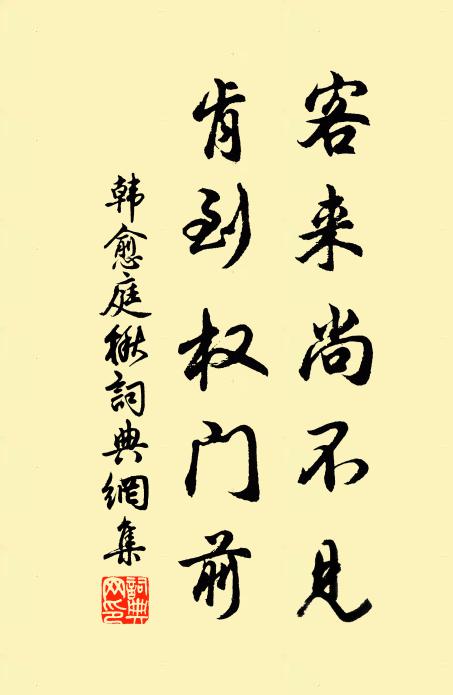 客来尚不见
肯到权门前
韩愈庭楸詞典網集
詞典網印